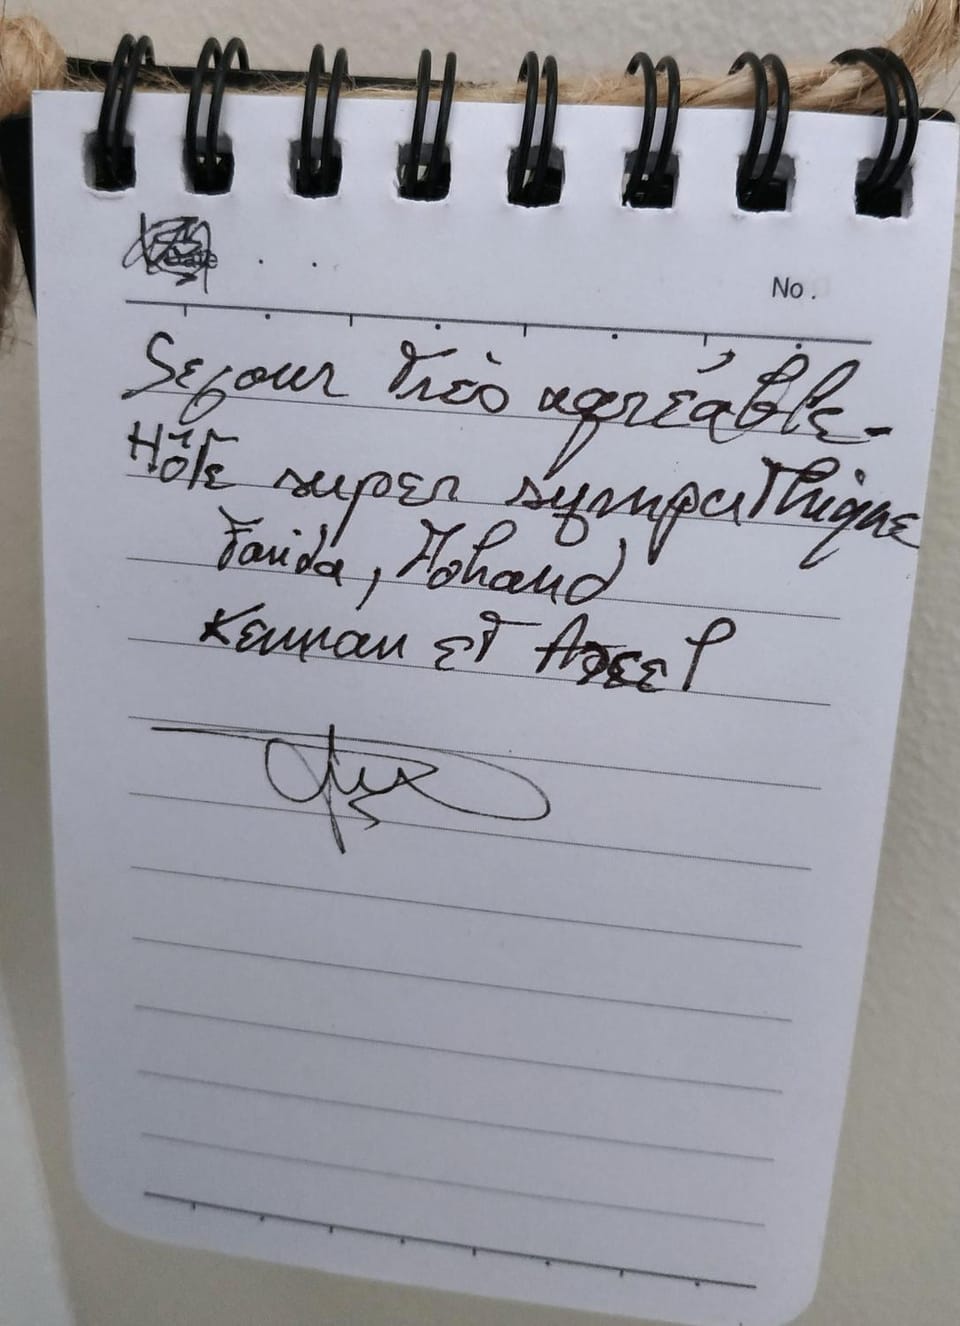 No.
Sejour très agréable-
Hôte super sympathique
Farida, Mohand
Kennan et Assel